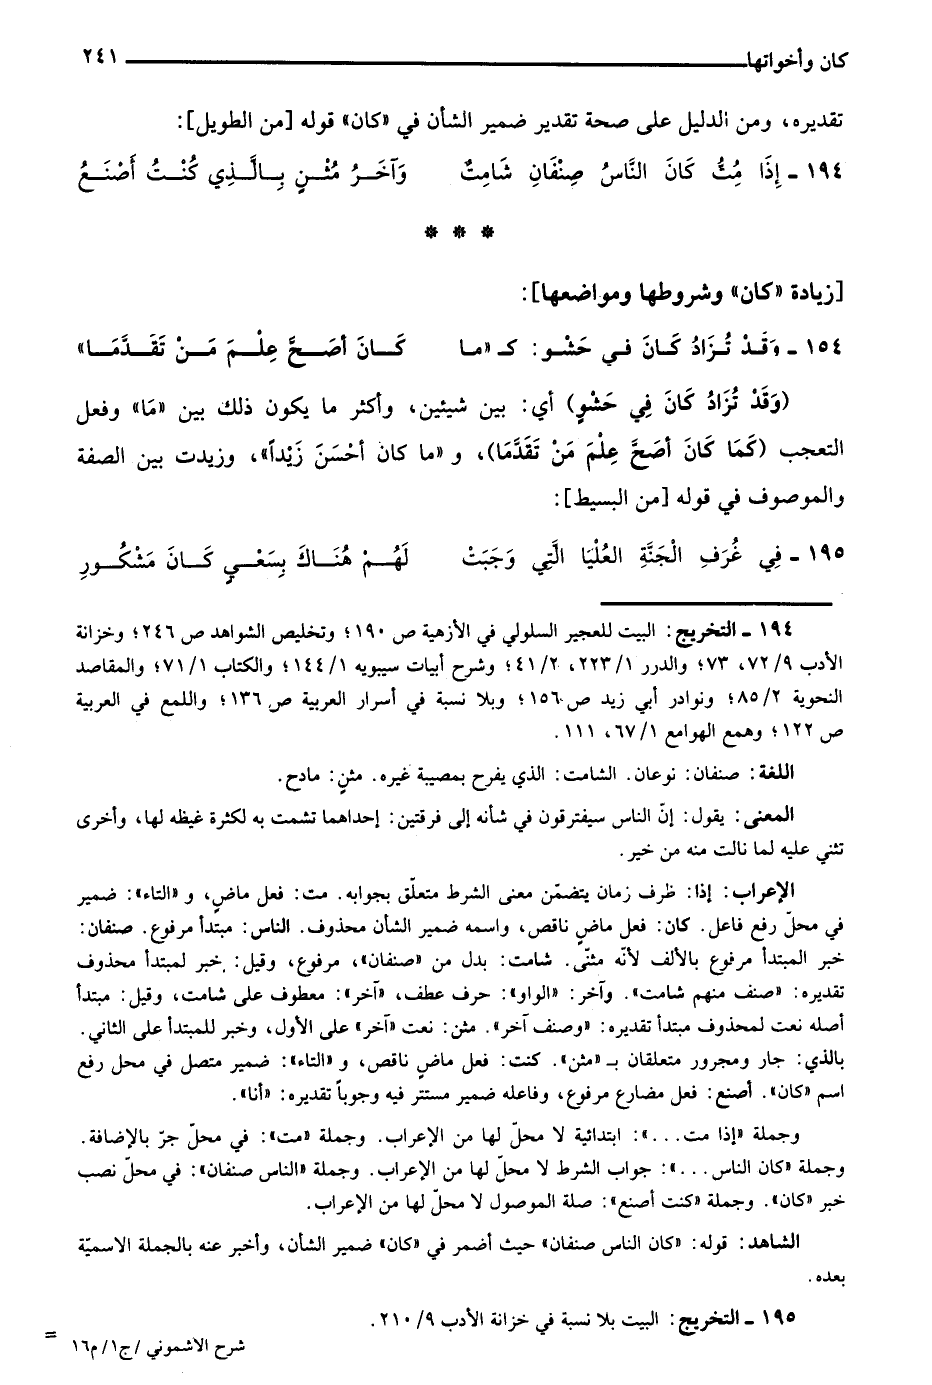 كان وأخواتها ٢٤١
تقديره، ومن الدليل على صحة تقدير ضمير الشأن في «كان» قوله [من الطويل]:
١٩٤ ـ إِذَا مِتُّ كَانَ النَّاسُ صِنْفَانِ شَامِتٌ وَآخَـرُ مُثْـنٍ بِـالَّـذِي كُنْـتُ أَصْنَـعُ
* * *
[زيادة «كان» وشروطها ومواضعها]:
١٥٤ ـ وَقَـدْ تُـزَادُ كَـانَ فـي حَشْـوٍ: كـ «ما كَـانَ أَصَـحَّ عِلْـمَ مَـنْ تَقَـدَّمَـا»
(وَقَدْ تُزَادُ كَانَ فِي حَشْوٍ) أي: بين شيئين، وأكثر ما يكون ذلك بين «مَا» وفعل
التعجب (كَمَا كَانَ أَصَحَّ عِلْمَ مَنْ تَقَدَّمَا)، و «ما كان أَحْسَنَ زَيْداً»، وزيدت بين الصفة
والموصوف في قوله [من البسيط]:
١٩٥ ـ فِي غُرَفِ الْجَنَّةِ العُلْيَا الَّتِي وَجَبَتْ لَهُـمْ هُنَـاكَ بِسَعْـيٍ كَـانَ مَشْكُـورِ
١٩٤ ـ التخريج: البيت للعجير السلولي في الأزهية ص ١٩٠؛ وتخليص الشواهد ص ٢٤٦؛ وخزانة
الأدب ٩/ ٧٢، ٧٣؛ والدرر ١/ ٢٢٣، ٢/ ٤١؛ وشرح أبيات سيبويه ١/ ١٤٤؛ والكتاب ١/ ٧١؛ والمقاصد
النحوية ٢/ ٨٥؛ ونوادر أبي زيد ص ١٥٦؛ وبلا نسبة في أسرار العربية ص ١٣٦؛ واللمع في العربية
ص ١٢٢؛ وهمع الهوامع ١/ ٦٧، ١١١.
اللغة: صنفان: نوعان. الشامت: الذي يفرح بمصيبة غيره. مثنٍ: مادح.
المعنى: يقول: إنّ الناس سيفترقون في شأنه إلى فرقتين: إحداهما تشمت به لكثرة غيظه لها، وأخرى
تثني عليه لما نالت منه من خير.
الإعراب: إذا: ظرف زمان يتضمّن معنى الشرط متعلّق بجوابه. مت: فعل ماضٍ، و «التاء»: ضمير
في محلّ رفع فاعل. كان: فعل ماضٍ ناقص، واسمه ضمير الشأن محذوف. الناس: مبتدأ مرفوع. صنفان:
خبر المبتدأ مرفوع بالألف لأنّه مثنّى. شامت: بدل من «صنفان»، مرفوع، وقيل: خبر لمبتدأ محذوف
تقديره: «صنف منهم شامت». وآخر: «الواو»: حرف عطف، «آخر»: معطوف على شامت، وقيل: مبتدأ
أصله نعت لمحذوف مبتدأ تقديره: «وصنف آخر». مثن: نعت «آخر» على الأول، وخبر للمبتدأ على الثاني.
بالذي: جار ومجرور متعلقان بـ «مثن». كنت: فعل ماضٍ ناقص، و «التاء»: ضمير متصل في محل رفع
اسم «كان». أصنع: فعل مضارع مرفوع، وفاعله ضمير مستتر فيه وجوباً تقديره: «أنا».
وجملة «إذا مت...»: ابتدائية لا محلّ لها من الإعراب. وجملة «مت»: في محلّ جرّ بالإضافة.
وجملة «كان الناس...»: جواب الشرط لا محلّ لها من الإعراب. وجملة «الناس صنفان»: في محلّ نصب
خبر «كان». وجملة «كنت أصنع»: صلة الموصول لا محلّ لها من الإعراب.
الشاهد: قوله: «كان الناس صنفان» حيث أضمر في «كان» ضمير الشأن، وأخبر عنه بالجملة الاسميّة
بعده.
١٩٥ ـ التخريج: البيت بلا نسبة في خزانة الأدب ٩/ ٢١٠.
=
شرح الاشموني /ج١/ م١٦